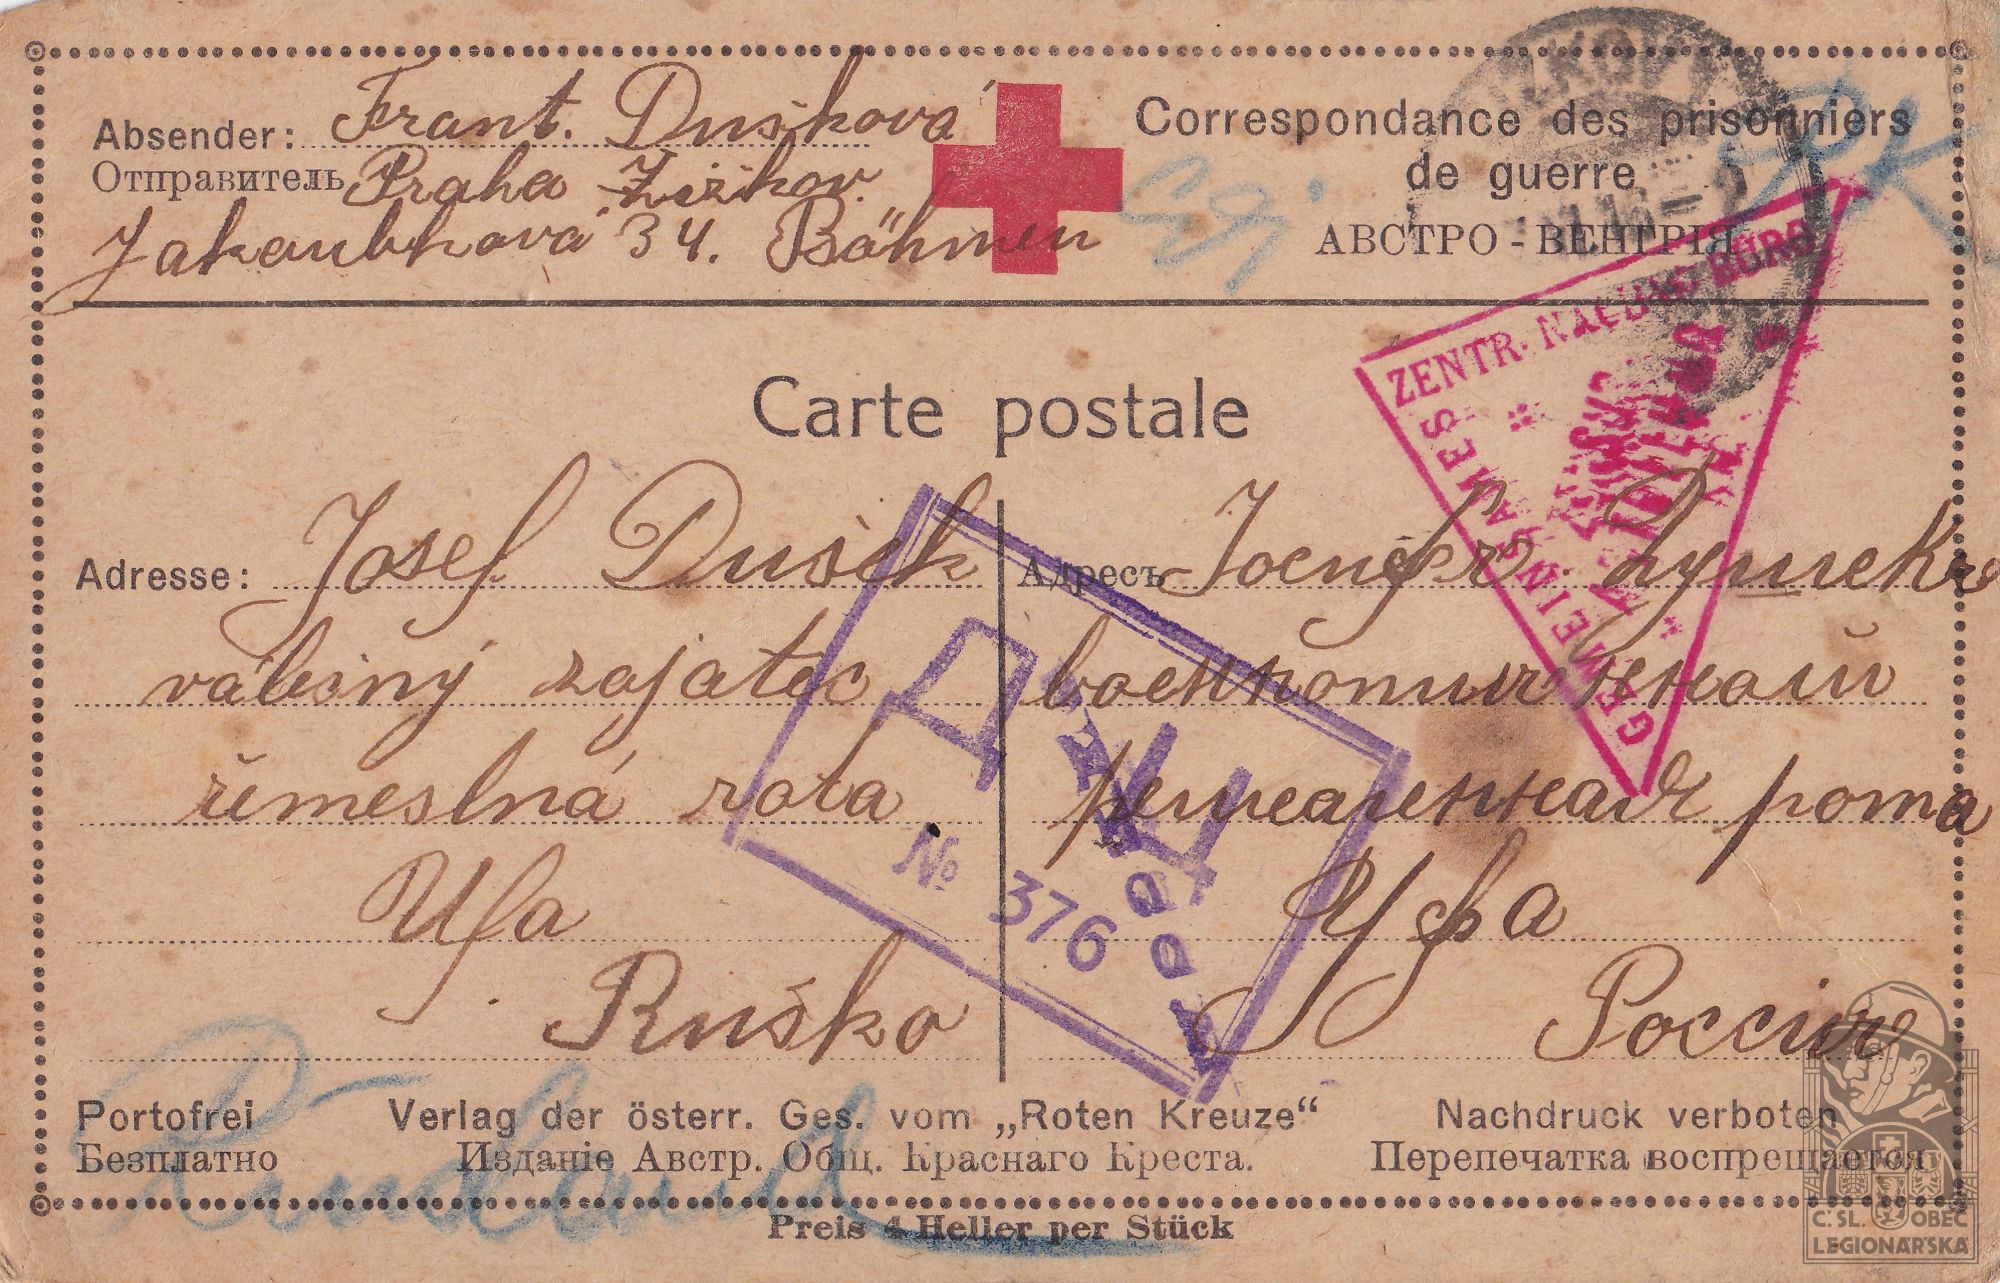 Absender: Frant. Dušková
Отправитель Praha Žižkov.
Jakoubkova 34. Böhmen
Correspondance des prisonniers
de guerre
АВСТРО - ВЕНГРІЯ
Carte postale
ZENTR. NACHW. BÜRO
GEMEINSAMES
ZENSUR
Adresse: Josef Dušek
válečný zajatec
řemeslná rota
Ufa
Rusko
Адресъ Іосифъ Душекъ
военноплѣнный
рота
Уфа
Россія
Д.Ц.
№ 376
Portofrei
Безплатно
Verlag der österr. Ges. vom „Roten Kreuze“
Изданіе Австр. Общ. Краснаго Креста.
Nachdruck verboten
Перепечатка воспрещается
Preis 4 Heller per Stück
Rußland
Č. SL. OBEC
LEGIONÁŘSKÁ